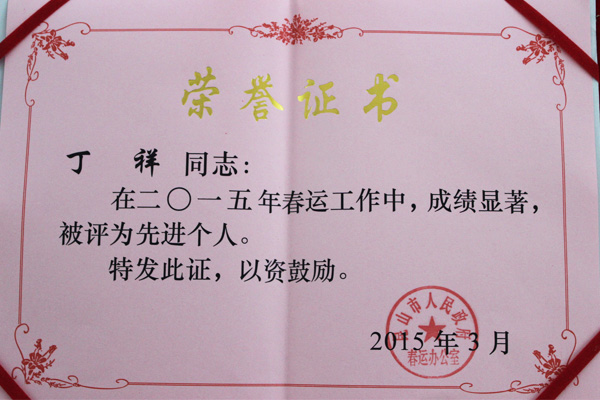 荣誉证书
丁 祥 同志:
在二〇一五年春运工作中,成绩显著,
被评为先进个人。
特发此证,以资鼓励。
山市人民政府
春运办公室
2015 年 3 月